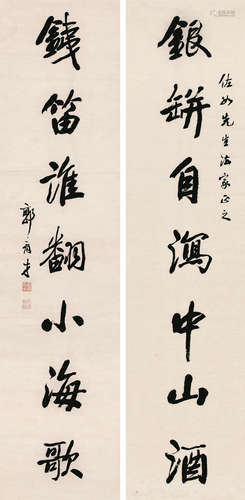 佐如先生法家正之
銀缾自瀉中山酒
銕笛誰翻小海歌
郭育才